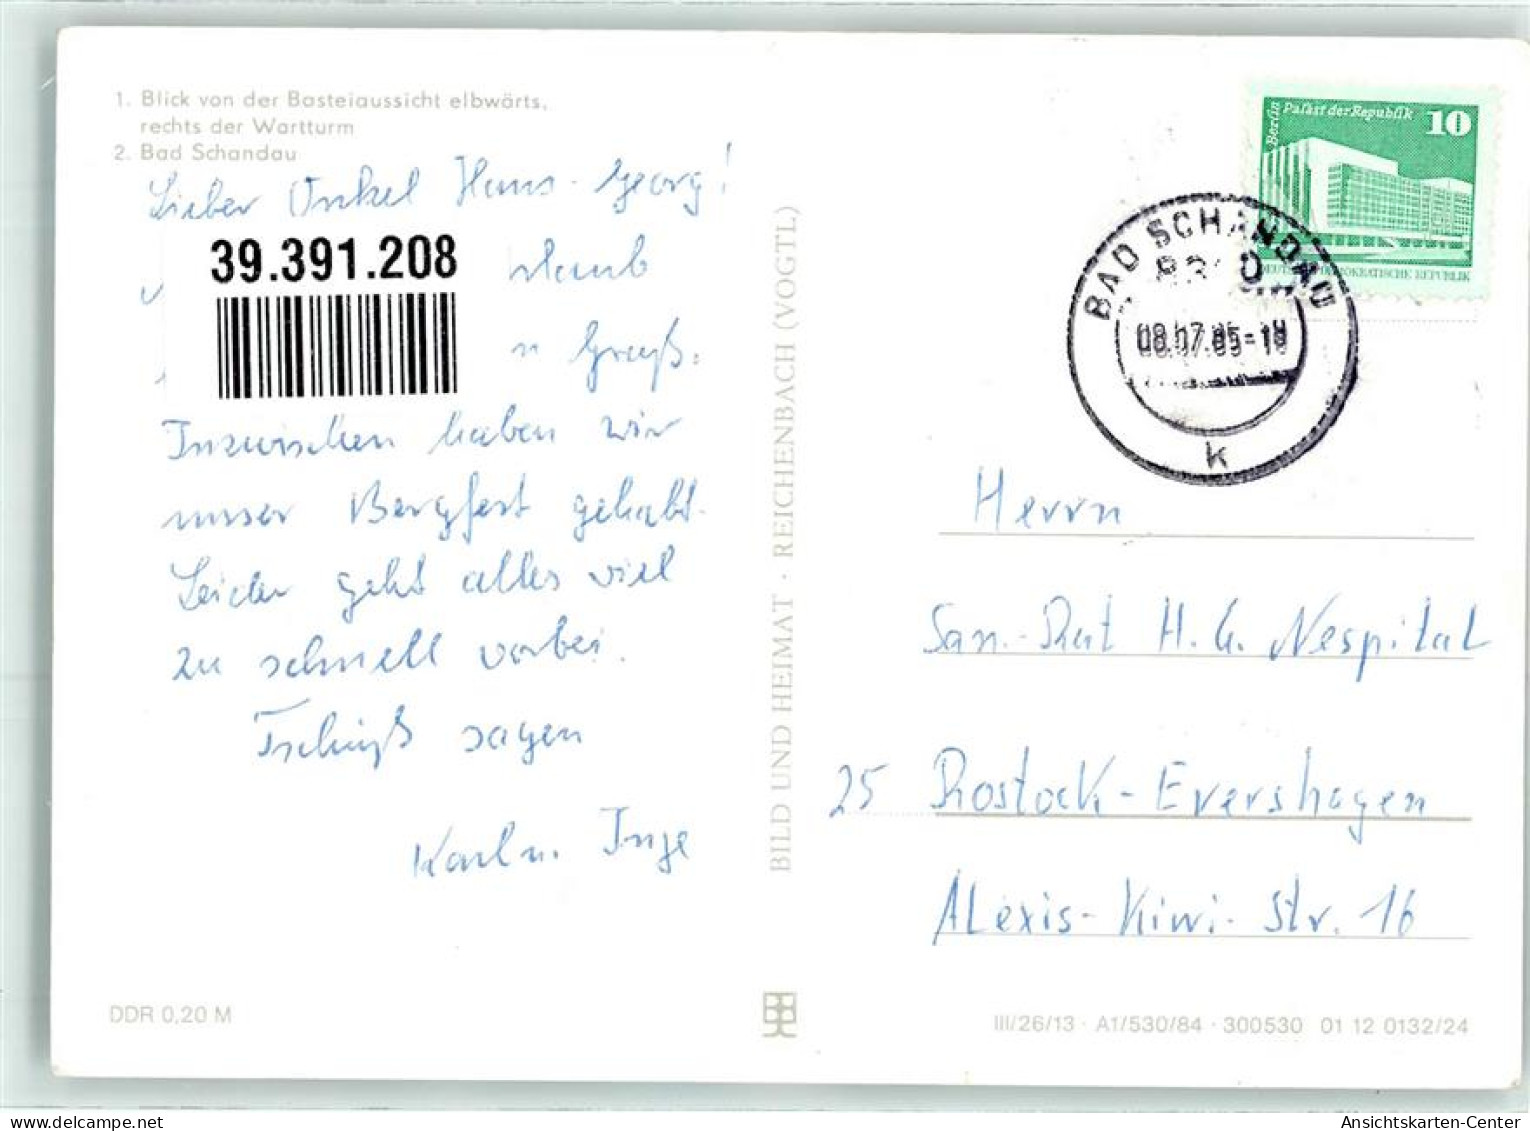 1. Blick von der Basteiaussicht elbwärts,
rechts der Wartturm
2. Bad Schandau
Lieber Onkel Hans-Georg!
39.391.208
Gruß.
Inzwischen haben wir
unser Bergfest gehabt.
Leider geht alles viel
zu schnell vorbei.
Tschüß sagen
Karl u. Inge
DDR 0,20 M
BILD UND HEIMAT · REICHENBACH (VOGTL)
Berlin Palast der Republik 10
DEUTSCHE DEMOKRATISCHE REPUBLIK
BAD SCHANDAU
08.07.85-18
k
Herrn
San.-Rat H. G. Nespital
25 Rostock-Evershagen
Alexis-Kiwi-Str. 16
III/26/13 · A1/530/84 · 300530 01 12 0132/24
Ansichtskarten-Center